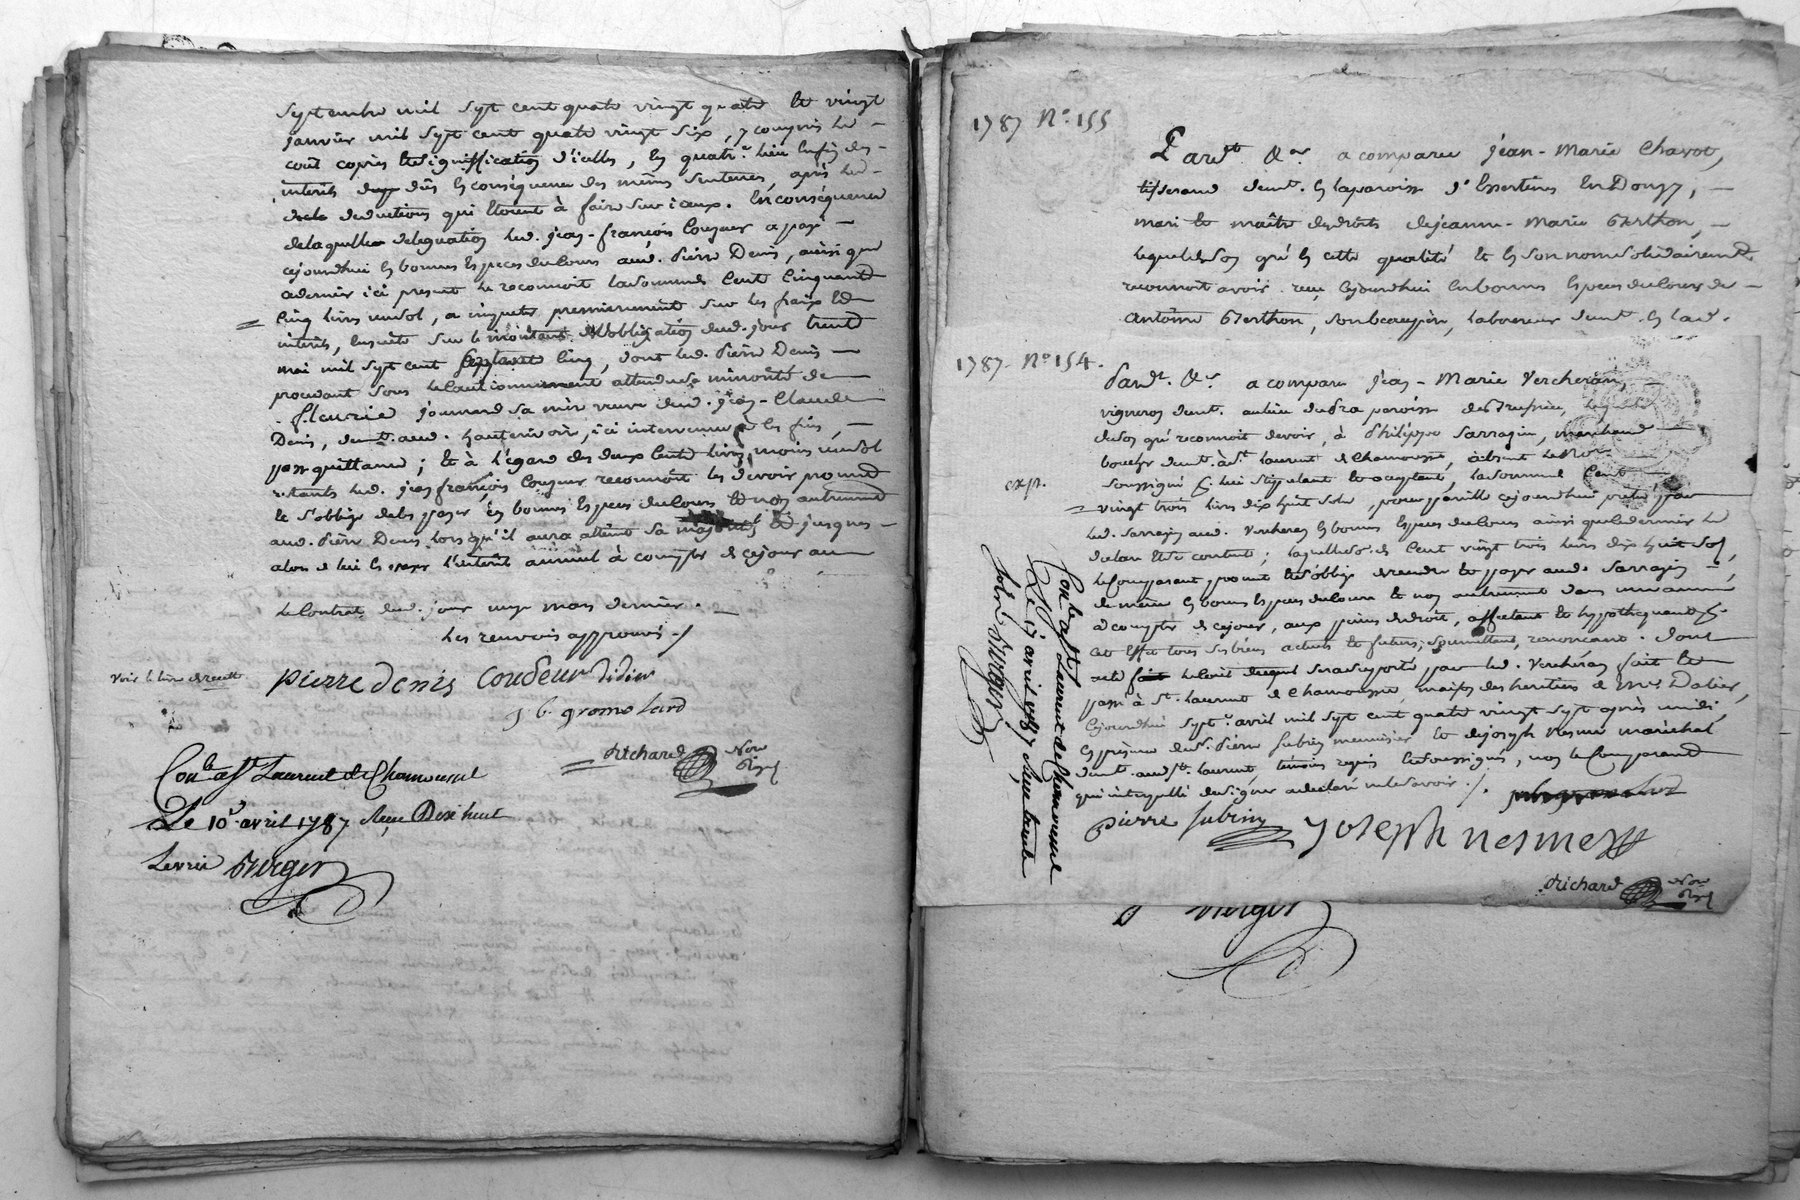 Septembre mil sept cent quatre vingt quatre et vingt
janvier mil sept cent quatre vingt six, y compris les
cout copies et signiffication d'icelles, les quatr.e lieu enfin des
interets dus en conséquence des mêmes sentences, après les
deductions qui etoient à faire sur iceux. En conséquence
de laquelle delegation led. jean-françois Couzner a payé
cejourdhui en bonnes especes du cours aud. Pierre Denis, ainsi que
ce dernier ici present le reconnoit la somme de Cent Cinquante
Cinq livres un sol, a imputer premierement sur les fraix et
interets, ensuite sur le montant de l'obligation dud. jour trente
mai mil sept cent septante cinq, dont led. Pierre Denis
procedant sous le cautionnement attendu sa minorité de
fleurie jounard sa mère veuve dud. jean-Claude
Denis, demt. aud. hauterivoire, ici intervenue à les fins,
passe quittance; et à l'égard des deux cents livres moins un sol
restants led. jean françois Couzner reconnoit les devoir promet
et s'oblige de les payer en bonnes especes du cours et non autrement
aud. Pierre Denis lors qu'il aura atteint sa majorité et jusques
alors de lui en payer l'intérêt annuel à compter de cejour au
le Contrat dud. jour mars dernier.
Les renvois approuvés ./
Voir le livre de recette
pierre denis Coudeur didier
j. b. gromolard
drichard Nore Royl
Con.lé a St Laurent de Chamousset
Le 10 avril 1787 Reçu Dix huit
Burger
1787 N.o 155
Pardt. &.a a comparu jean-Marie Chavot,
tisserand demt. en la paroisse d'Essertines En Donzy,
mari et maître des droits de jeanne-Marie Berthon,
lequel de son gré en cette qualité et en son nom solidairemt.
reconnoit avoir reçu cejourdhui en bonnes especes du cours de
Antoine Berthon, son beaupère, laboureur demt. en lad.
1787. N.o 154.
exp.
Pardt. &.a a comparu jean-Marie Vercheran,
vigneron demt. au lieu de la paroisse de Brussieu, lequel
de son gré reconnoit devoir, à Philippe Sarrazin, marchand
boucher demt. à St. Laurent de Chamousset, absent le Nore
soussigné pr. lui stipulant et acceptant, la somme de Cent
vingt trois livres dix huit sols, pour pareille cejourdhui pretée par
led. Sarrazin aud. Vercheran en bonnes especes du cours ainsi que le dernier le
declare et s'en contente; laquelle so.e de Cent vingt trois livres dix huit sols,
le Comparant promet et s'oblige de rendre et payer aud. Sarrazin
de même en bonnes especes du cours et non autrement dans une année
à compter de cejour, aux peines de droit, affectant et hypothequant pr.
cet effet tous ses biens actuels et futurs; soumettant, renonçant. Dont
acte sera supporté par led. Vercheran fait et
passé à St. Laurent de Chamousset, maison des heritiers de Mr. Dalier,
Cejourdhui sept.e avril mil sept cent quatre vingt sept après midi,
en presence de sr. Pierre Subrin menuisier et de joseph Nesme maréchal
demt. aud. St. Laurent, témoins requis et soussignés, non le Comparant
qui interpellé de signer a declaré ne le savoir ./.
pierre subrin joseph nesme
drichard Nore Royl
Con.lé a St Laurent de Chamousset
Le 17 avril 1787 Reçu trente
Burger
Burger